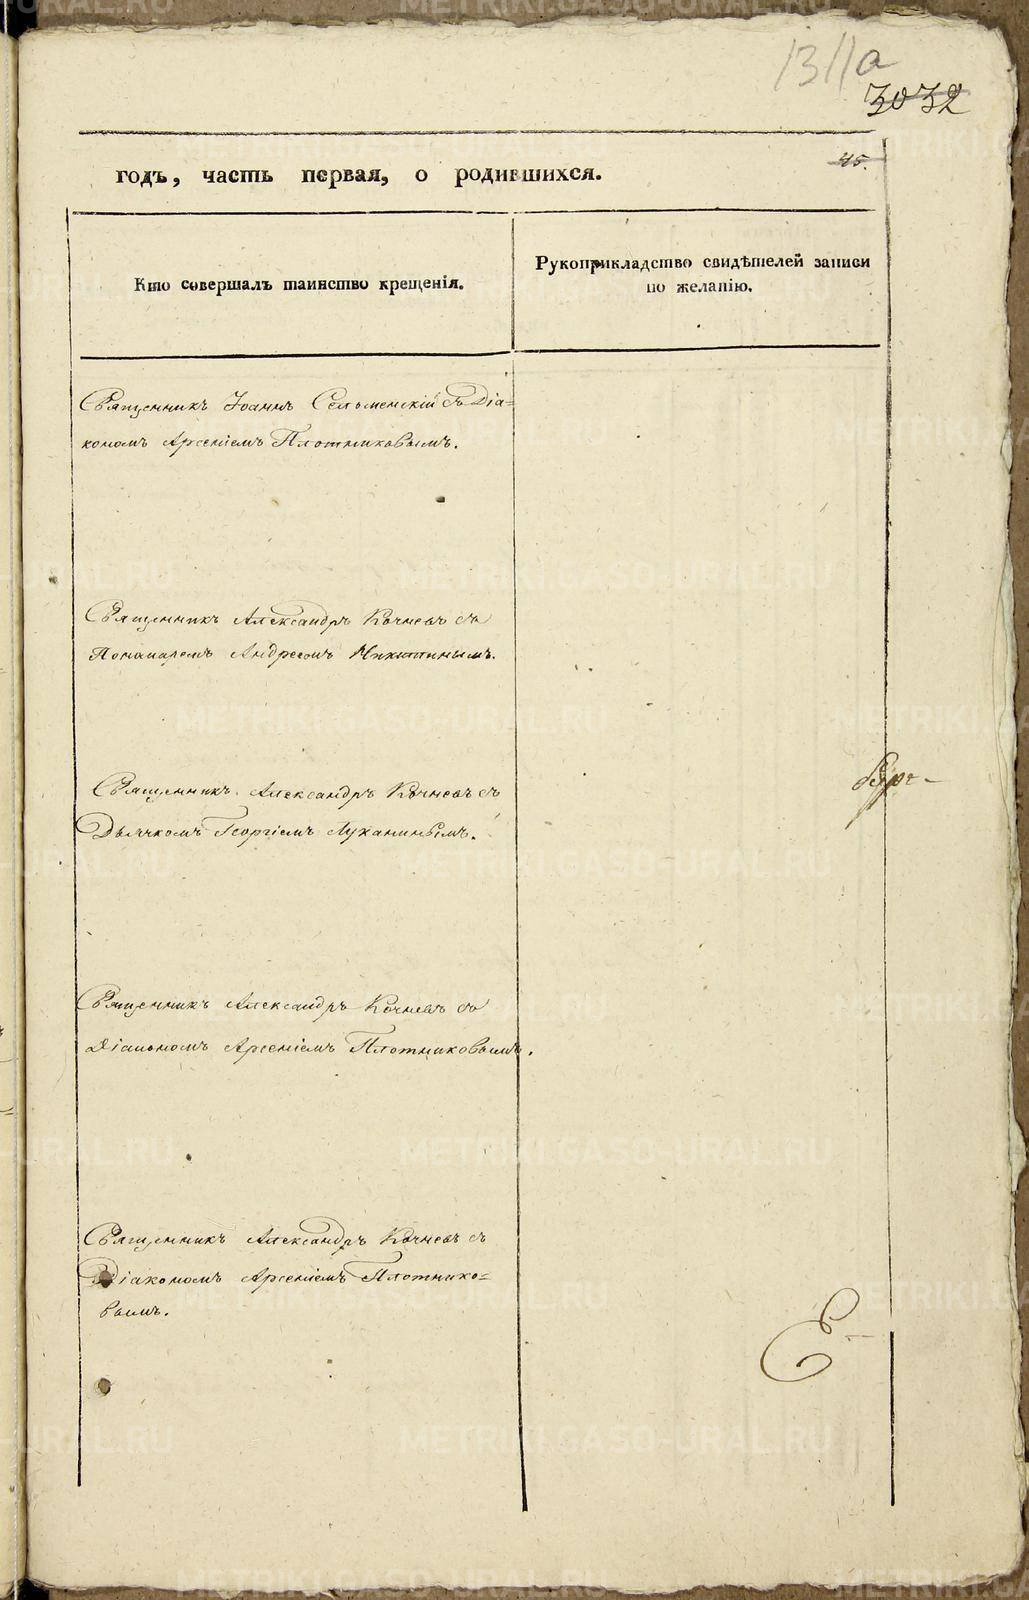 1311а
3032
45.
годъ, часть первая, о родившихся.
Кто совершалъ таинство крещенія.
Рукоприкладство свидѣтелей записи
по желанію.
Священникъ Іоаннъ Сельменскій съ Діа=
кономъ Арсеніемъ Плотниковымъ.
Священникъ Александръ Кочневъ съ
Пономаремъ Андреемъ Никитинымъ.
Священникъ Александръ Кочневъ съ
Дьячкомъ Георгіемъ Луканинымъ.
Священникъ Александръ Кочневъ съ
Діакономъ Арсеніемъ Плотниковымъ.
Священникъ Александръ Кочневъ съ
Діакономъ Арсеніемъ Плотнико=
вымъ.
METRIKI.GASO-URAL.RU